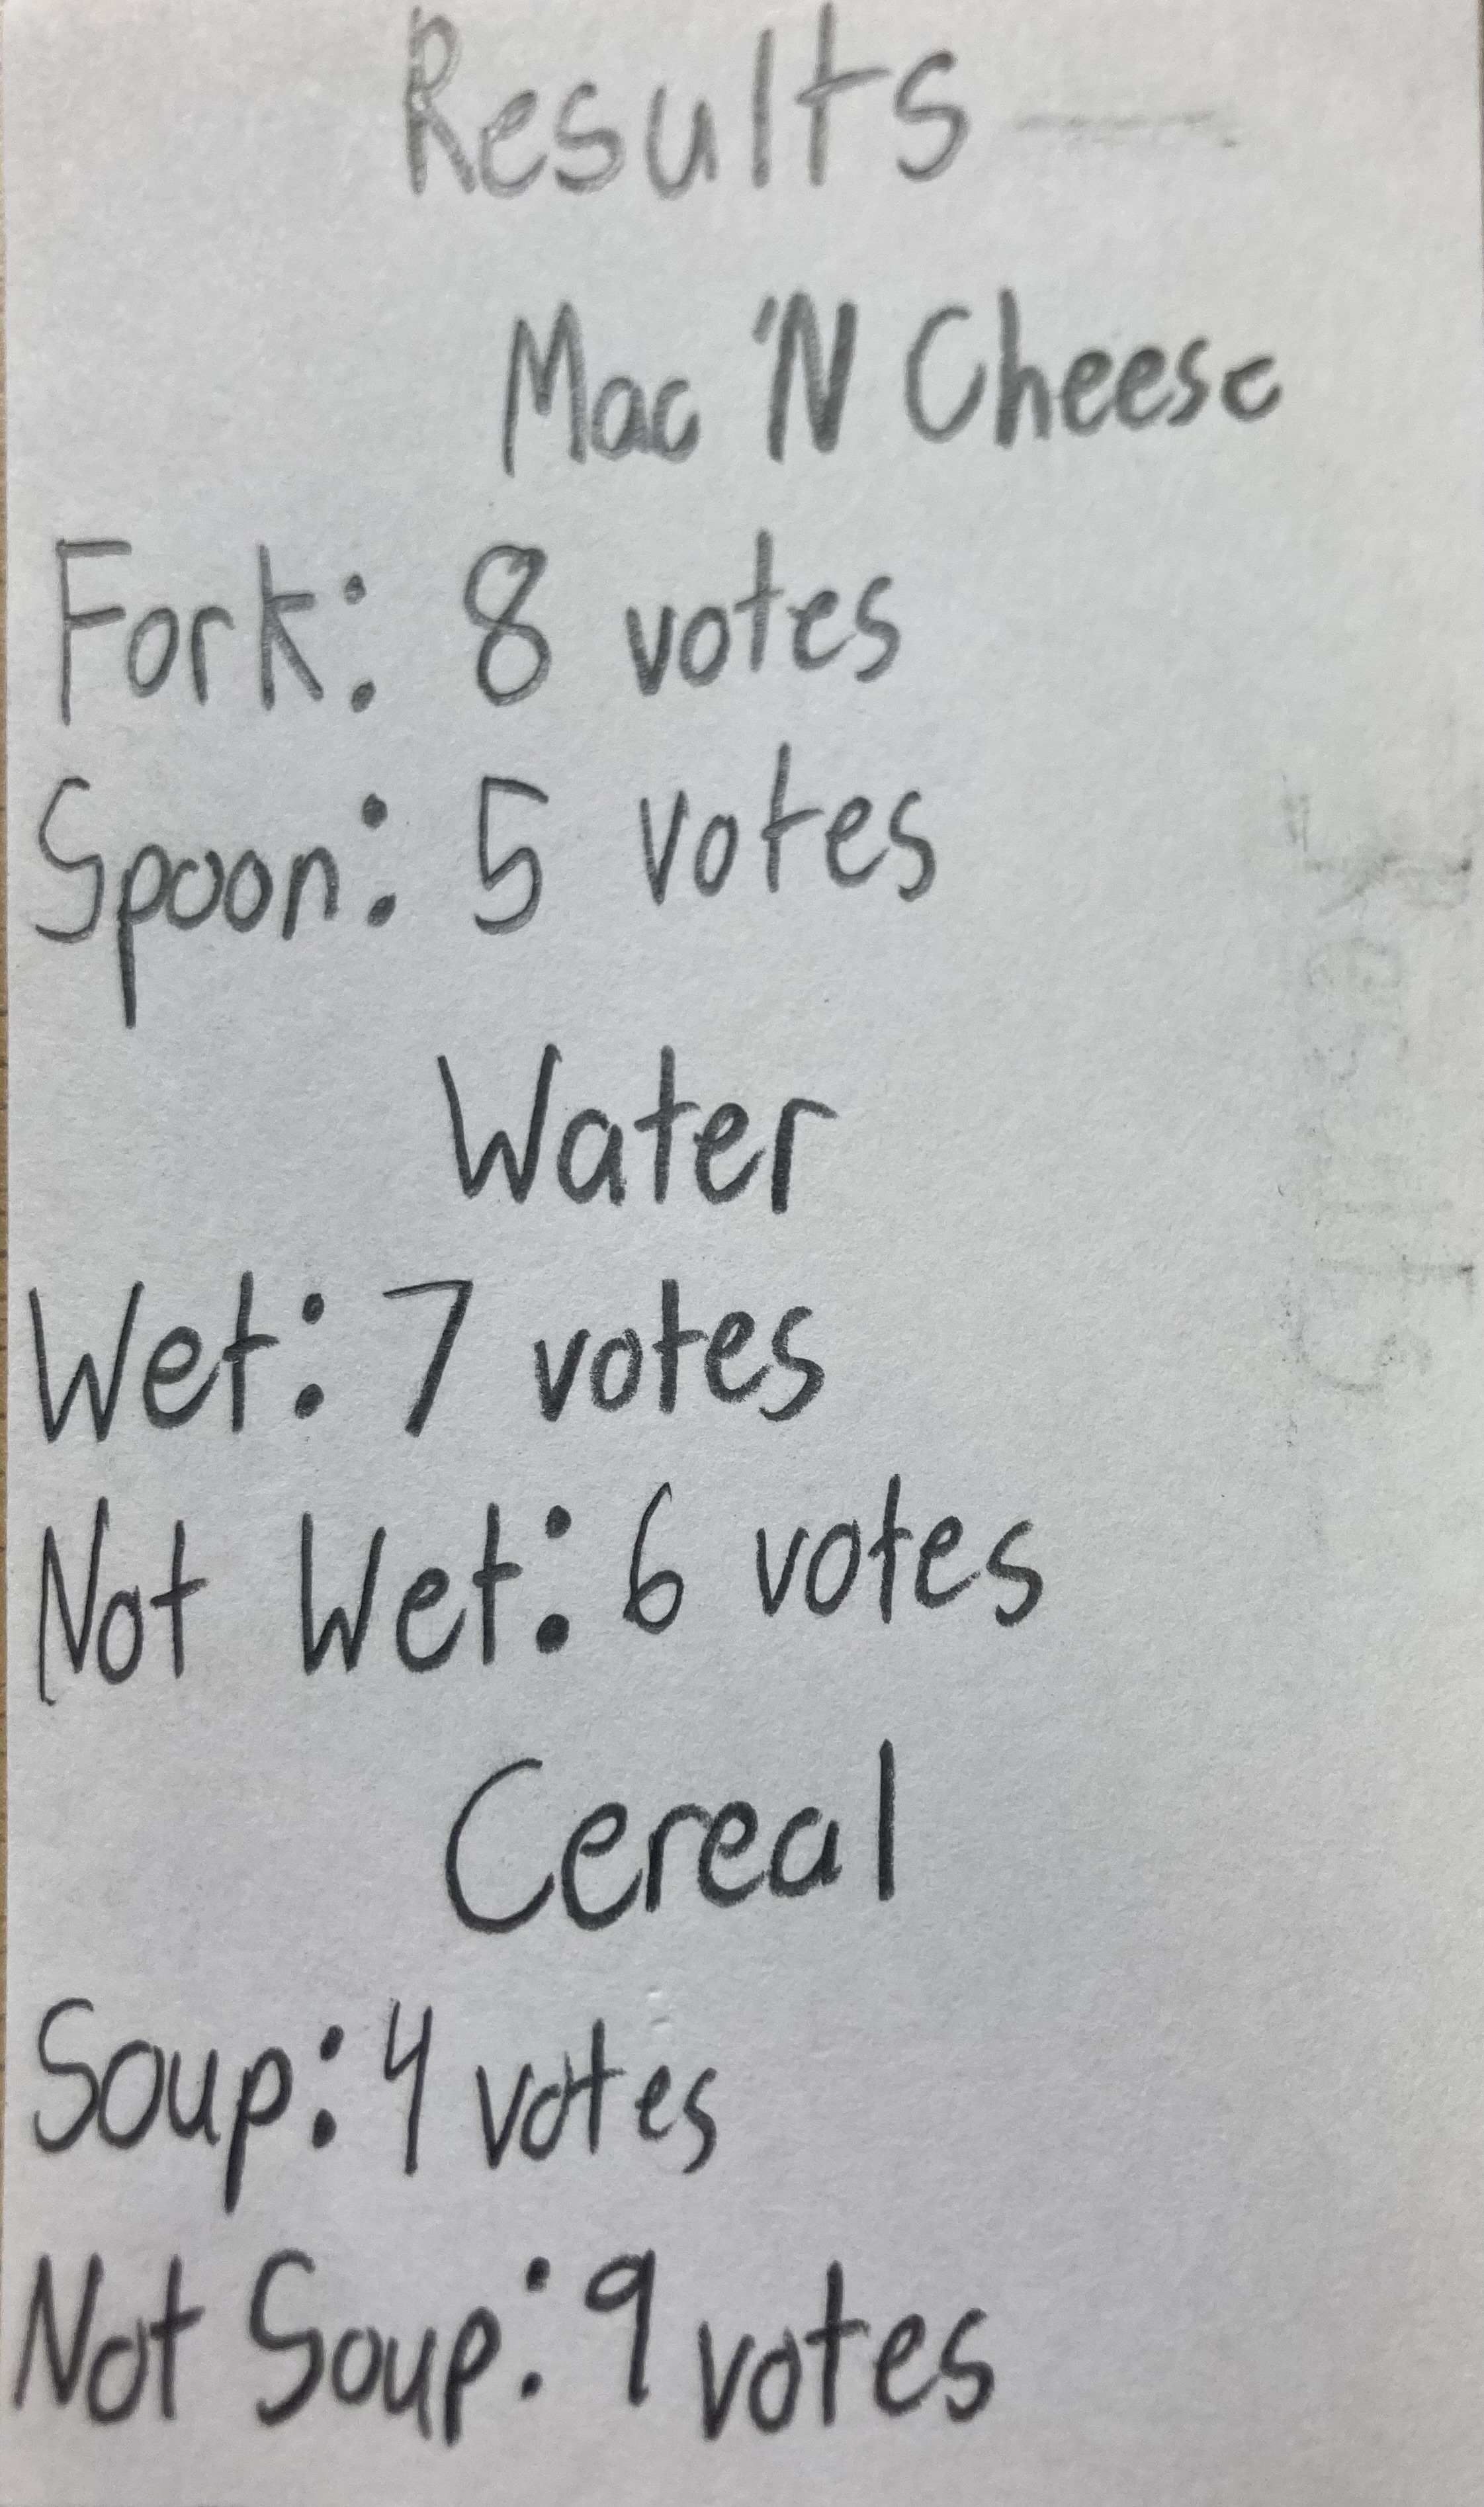 Results
Mac 'N Cheese
Fork: 8 votes
Spoon: 5 votes
Water
Wet: 7 votes
Not Wet: 6 votes
Cereal
Soup: 4 votes
Not Soup: 9 votes
Results